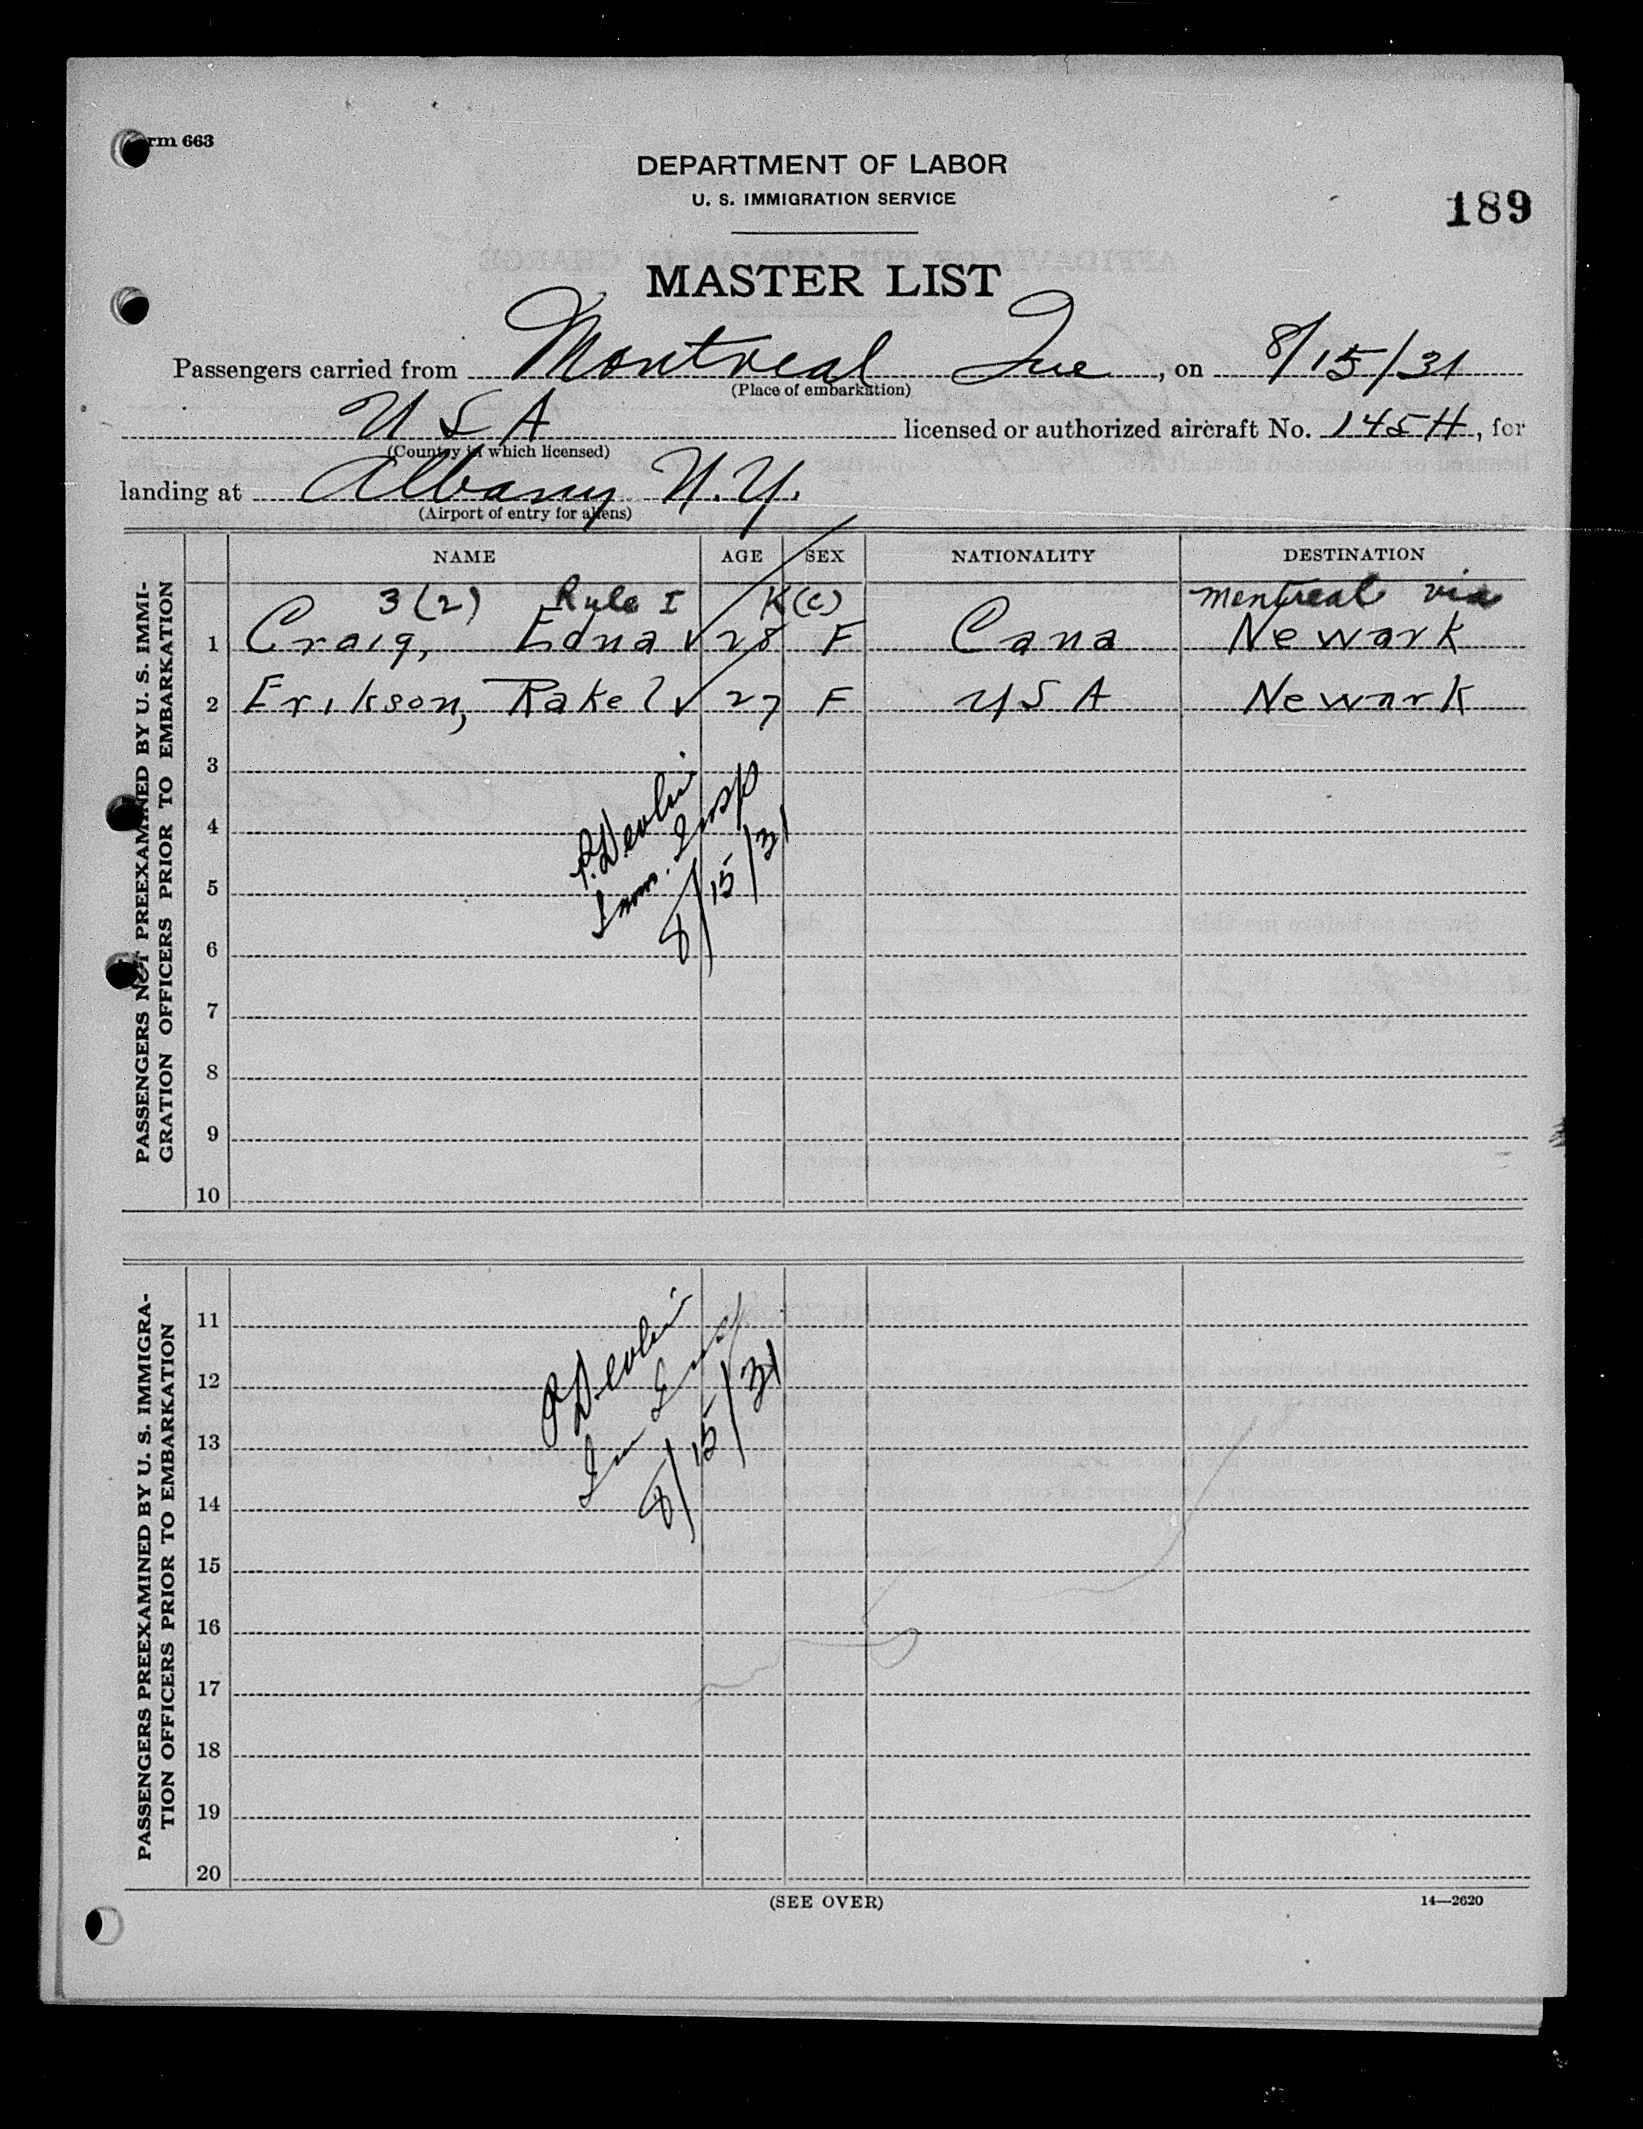 rm 663
DEPARTMENT OF LABOR
U. S. IMMIGRATION SERVICE
189
MASTER LIST
Passengers carried from Montreal Que, on 8/15/31
(Place of embarkation)
U S A licensed or authorized aircraft No. 145H, for
(Country in which licensed)
landing at Albany N.Y.
(Airport of entry for aliens)
NAME AGE SEX NATIONALITY DESTINATION
3(2) Rule I K(c) Montreal via
1 Craig, Edna 28 F Cana Newark
2 Erikson, Rakel 27 F USA Newark
3
4
5
6
7
8
9
10
P. Devlin
Imm. Insp
8/15/31
PASSENGERS NOT PREEXAMINED BY U. S. IMMI-
GRATION OFFICERS PRIOR TO EMBARKATION
11
12
13
14
15
16
17
18
19
20
P Devlin
Im Insp
8/15/31
PASSENGERS PREEXAMINED BY U. S. IMMIGRA-
TION OFFICERS PRIOR TO EMBARKATION
(SEE OVER)
14—2620